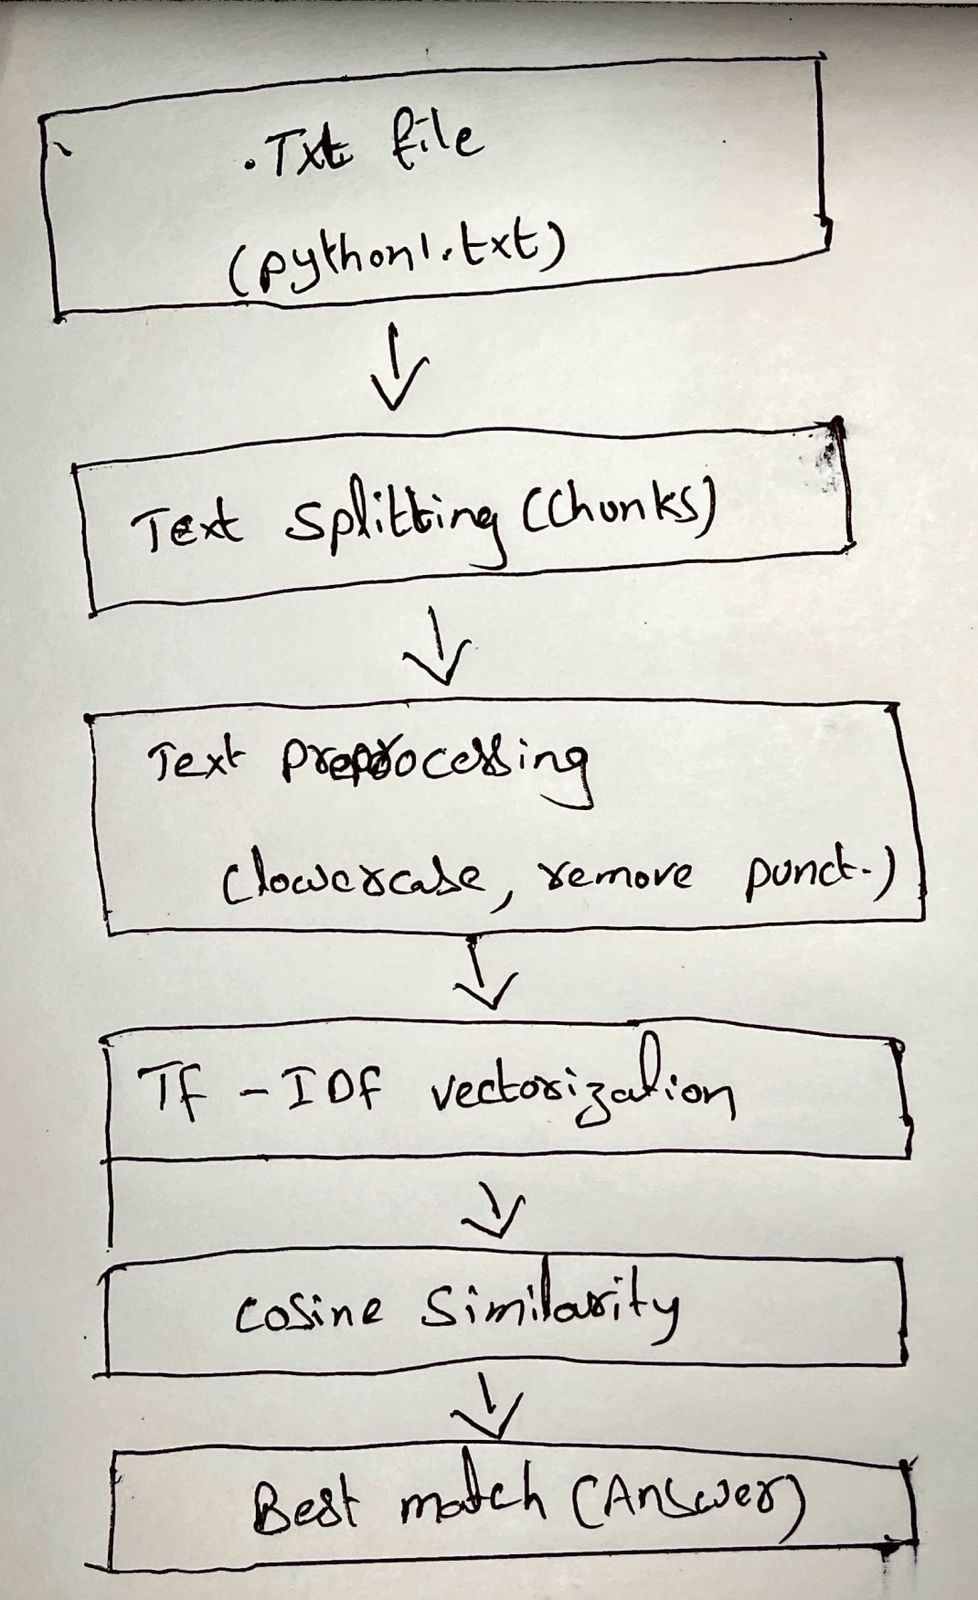 .Txt file
(python1.txt)
Text Splitting (Chunks)
Text Preprocessing
(lowercase, remove punct.)
Tf - IDf vectorization
Cosine Similarity
Best match (Answer)